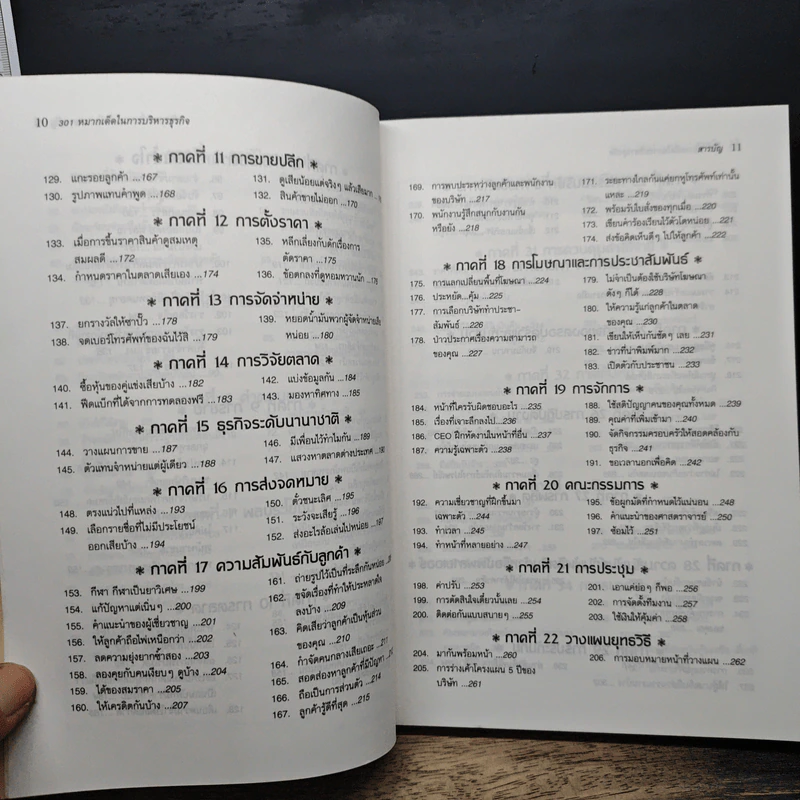 10 301 หมากเด็ดในการบริหารธุรกิจ
* ภาคที่ 11 การขายปลีก *
129. แกะรอยลูกค้า ...167
130. รูปภาพแทนคำพูด ...168
131. ดูเสียน้อยแต่จริงๆ แล้วเสียมาก
132. สินค้าขายไม่ออก ...170
* ภาคที่ 12 การตั้งราคา *
133. เมื่อการขึ้นราคาสินค้าดูสมเหตุ
สมผลดี ...172
134. กำหนดราคาในตลาดเสียเอง ...174
135. หลีกเลี่ยงกับดักเรื่องการ
ตัดราคา ...175
136. ข้อตกลงที่ดูหอมหวานนัก ...176
* ภาคที่ 13 การจัดจำหน่าย *
137. ยกรางวัลให้ซาปั๊ว ...178
138. จดเบอร์โทรศัพท์ของฉันไว้สิ ...179
139. หยอดน้ำมันพวกผู้จัดจำหน่ายเสีย
หน่อย ...180
* ภาคที่ 14 การวิจัยตลาด *
140. ซื้อหุ้นของคู่แข่งเสียบ้าง ...182
141. ฟีดแบ็กที่ได้จากการทดลองฟรี ...183
142. แบ่งข้อมูลกัน ...184
143. มองหาทิศทาง ...185
* ภาคที่ 15 ธุรกิจระดับนานาชาติ *
144. วางแผนการขาย ...187
145. ตัวแทนจำหน่ายแต่ผู้เดียว ...188
146. มีเพื่อนไว้ทำไมกัน ...189
147. แสวงหาตลาดต่างประเทศ ...190
* ภาคที่ 16 การส่งจดหมาย *
148. ตรงแน่วไปที่แหล่ง ...193
149. เลือกรายชื่อที่ไม่มีประโยชน์
ออกเสียบ้าง ...194
150. ตั๋วชนะเลิศ ...195
151. ระวังจะเสียรู้ ...196
152. ส่งอะไรล้อเล่นไปหน่อย ...197
* ภาคที่ 17 ความสัมพันธ์กับลูกค้า *
153. กีฬา กีฬาเป็นยาวิเศษ ...199
154. แก้ปัญหาแต่เนิ่นๆ ...200
155. คำแนะนำของผู้เชี่ยวชาญ ...201
156. ให้ลูกค้าถือไพ่เหนือกว่า ...202
157. ลดความยุ่งยากซ้ำสอง ...203
158. ลองคุยกับคนเงียบๆ ดูบ้าง ...204
159. ได้ของสมราคา ...205
160. ให้เครดิตกันบ้าง ...207
161. ถ่ายรูปไว้เป็นที่ระลึกกันหน่อย
162. ขจัดเรื่องที่ทำให้ประหลาดใจ
ลงบ้าง ...209
163. คิดเสียว่าลูกค้าเป็นหุ้นส่วน
ของคุณ ...210
164. กำจัดคนกลางเสียเถอะ ...211
165. สอดส่องหาลูกค้าที่มีปัญหา
166. ถือเป็นการส่วนตัว ...214
167. ลูกค้ารู้ดีที่สุด ...215
สารบัญ 11
169. การพบปะระหว่างลูกค้าและพนักงาน
ของบริษัท ...217
170. พนักงานรู้สึกสนุกกับงานกัน
หรือยัง ...218
171. ระยะทางไกลกันแค่ยกหูโทรศัพท์เท่านั้น
แหละ ...219
172. พร้อมรับใบสั่งของทุกเมื่อ ...220
173. เขียนคำร้องเรียนไว้ตัวโตหน่อย ...221
174. ส่งข้อคิดเห็นดีๆ ไปให้ลูกค้า ...222
* ภาคที่ 18 การโฆษณาและการประชาสัมพันธ์ *
175. การแลกเปลี่ยนพื้นที่โฆษณา ...224
176. ประหยัด...คุ้ม ...225
177. การเลือกบริษัททำประชา-
สัมพันธ์ ...226
178. ป่าวประกาศเรื่องความสามารถ
ของคุณ ...227
179. ไม่จำเป็นต้องใช้บริษัทโฆษณา
ดังๆ ก็ได้ ...228
180. ให้ความรู้แก่ลูกค้าในตลาด
ของคุณ ...230
181. เขียนให้เห็นกันชัดๆ เลย ...231
182. ข่าวที่น่าพิมพ์มาก ...232
183. เปิดตัวกับประชาชน ...233
* ภาคที่ 19 การจัดการ *
184. หน้าที่ใครรับผิดชอบอะไร ...235
185. เรื่องที่เจาะลึกลงไป ...236
186. CEO ฝึกหัดงานในหน้าที่อื่น ...237
187. ความรู้เฉพาะตัว ...238
188. ใช้สติปัญญาคนของคุณทั้งหมด ...239
189. คุณค่าที่เพิ่มเข้ามา ...240
190. จัดกิจกรรมครอบครัวให้สอดคล้องกับ
ธุรกิจ ...241
191. ขอเวลานอกเพื่อคิด ...242
* ภาคที่ 20 คณะกรรมการ *
192. ความเชี่ยวชาญที่ฝึกขึ้นมา
เฉพาะตัว ...244
193. ทำเวลา ...245
194. ทำหน้าที่หลายอย่าง ...247
195. ข้อผูกมัดที่กำหนดไว้แน่นอน ...248
196. คำแนะนำของศาสตราจารย์ ...250
197. ซ้อมไว้ ...251
* ภาคที่ 21 การประชุม *
198. ค่าปรับ ...253
199. การตัดสินใจเดี๋ยวนั้นเลย ...254
200. ติดต่อกันแบบสบายๆ ...255
201. เอาแค่ย่อๆ ก็พอ ...256
202. การจัดตั้งทีมงาน ...257
203. ใช้เงินให้คุ้มค่า ...258
* ภาคที่ 22 วางแผนยุทธวิธี *
204. มากันพร้อมหน้า ...260
205. การร่างเค้าโครงแผน 5 ปีของ
บริษัท ...261
206. การมอบหมายหน้าที่วางแผน ...262